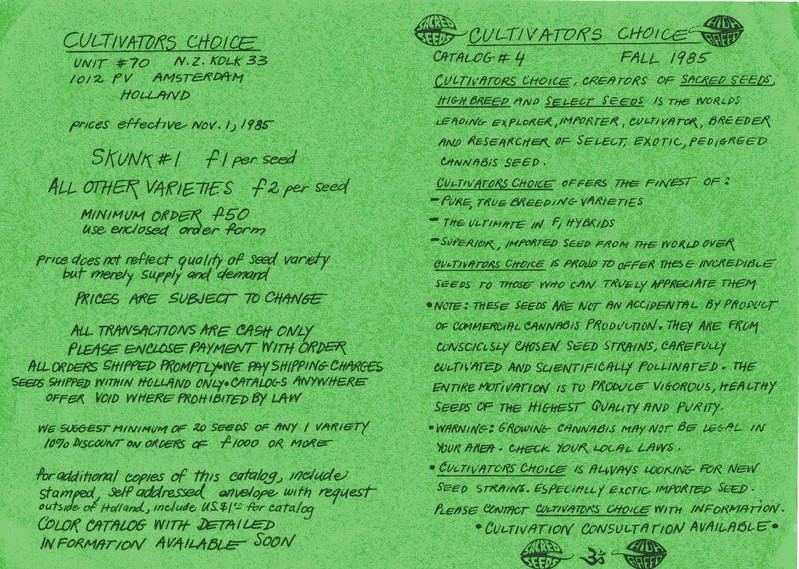 CULTIVATORS CHOICE
UNIT #70 N.Z. KOLK 33
1012 PV AMSTERDAM
HOLLAND
prices effective NOV. 1, 1985
SKUNK #1 f1 per seed
ALL OTHER VARIETIES f2 per seed
MINIMUM ORDER f50
use enclosed order form
price does not reflect quality of seed variety
but merely supply and demand
PRICES ARE SUBJECT TO CHANGE
ALL TRANSACTIONS ARE CASH ONLY
PLEASE ENCLOSE PAYMENT WITH ORDER
ALL ORDERS SHIPPED PROMPTLY•WE PAY SHIPPING CHARGES
SEEDS SHIPPED WITHIN HOLLAND ONLY•CATALOGS ANYWHERE
OFFER VOID WHERE PROHIBITED BY LAW
WE SUGGEST MINIMUM OF 20 SEEDS OF ANY 1 VARIETY
10% DISCOUNT ON ORDERS OF f1000 OR MORE
for additional copies of this catalog, include
stamped, self addressed envelope with request
outside of Holland, include US $1°° for catalog
COLOR CATALOG WITH DETAILED
INFORMATION AVAILABLE SOON
SACRED SEEDS CULTIVATORS CHOICE HIGH BREED
CATALOG #4 FALL 1985
CULTIVATORS CHOICE, CREATORS OF SACRED SEEDS,
HIGH BREED AND SELECT SEEDS IS THE WORLDS
LEADING EXPLORER, IMPORTER, CULTIVATOR, BREEDER
AND RESEARCHER OF SELECT, EXOTIC, PEDIGREED
CANNABIS SEED.
CULTIVATORS CHOICE OFFERS THE FINEST OF:
- PURE, TRUE BREEDING VARIETIES
- THE ULTIMATE IN F1 HYBRIDS
- SUPERIOR, IMPORTED SEED FROM THE WORLD OVER
CULTIVATORS CHOICE IS PROUD TO OFFER THESE INCREDIBLE
SEEDS TO THOSE WHO CAN TRUELY APPRECIATE THEM
• NOTE: THESE SEEDS ARE NOT AN ACCIDENTAL BY PRODUCT
OF COMMERCIAL CANNABIS PRODUTION. THEY ARE FROM
CONSCIOUSLY CHOSEN SEED STRAINS, CAREFULLY
CULTIVATED AND SCIENTIFICALLY POLLINATED. THE
ENTIRE MOTIVATION IS TO PRODUCE VIGOROUS, HEALTHY
SEEDS OF THE HIGHEST QUALITY AND PURITY.
• WARNING: GROWING CANNABIS MAY NOT BE LEGAL IN
YOUR AREA. CHECK YOUR LOCAL LAWS.
• CULTIVATORS CHOICE IS ALWAYS LOOKING FOR NEW
SEED STRAINS. ESPECIALLY EXOTIC IMPORTED SEED.
PLEASE CONTACT CULTIVATORS CHOICE WITH INFORMATION.
• CULTIVATION CONSULTATION AVAILABLE •
SACRED SEEDS ॐ HIGH BREED